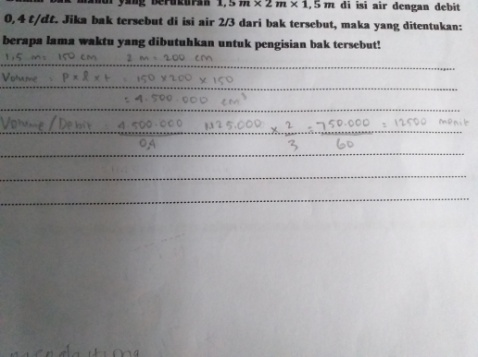 yang berukuran 1,5 m × 2 m × 1,5 m di isi air dengan debit
0,4 ℓ/dt. Jika bak tersebut di isi air 2/3 dari bak tersebut, maka yang ditentukan:
berapa lama waktu yang dibutuhkan untuk pengisian bak tersebut!
1,5 m = 150 cm 2 m = 200 cm
Volume : p x l x t : 150 x 200 x 150
: 4.500.000 cm³
Volume / Debit : 4.500.000 / 0,4 1125.000 x 2/3 = 750.000 / 60 = 12500 menit